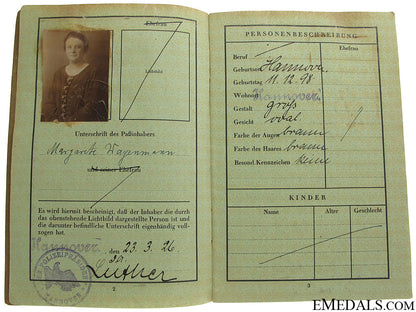 Ehefrau
Lichtbild
Unterschrift des Paßinhabers
Margarete Wagenmann
und seiner Ehefrau
Es wird hiermit bescheinigt, daß der Inhaber die durch
das obenstehende Lichtbild dargestellte Person ist und
die darunter befindliche Unterschrift eigenhändig voll-
zogen hat.
Hannover, den 23. 3. 26
Luther
HANNOVER
2
PERSONENBESCHREIBUNG
Ehefrau
Beruf
Geburtsort Hannover
Geburtstag 11. 12. 98
Wohnort Hannover.
Gestalt groß
Gesicht oval
Farbe der Augen braun
Farbe des Haares braun
Besond. Kennzeichen keine
KINDER
Name Alter Geschlecht
3
EMEDALS.COM